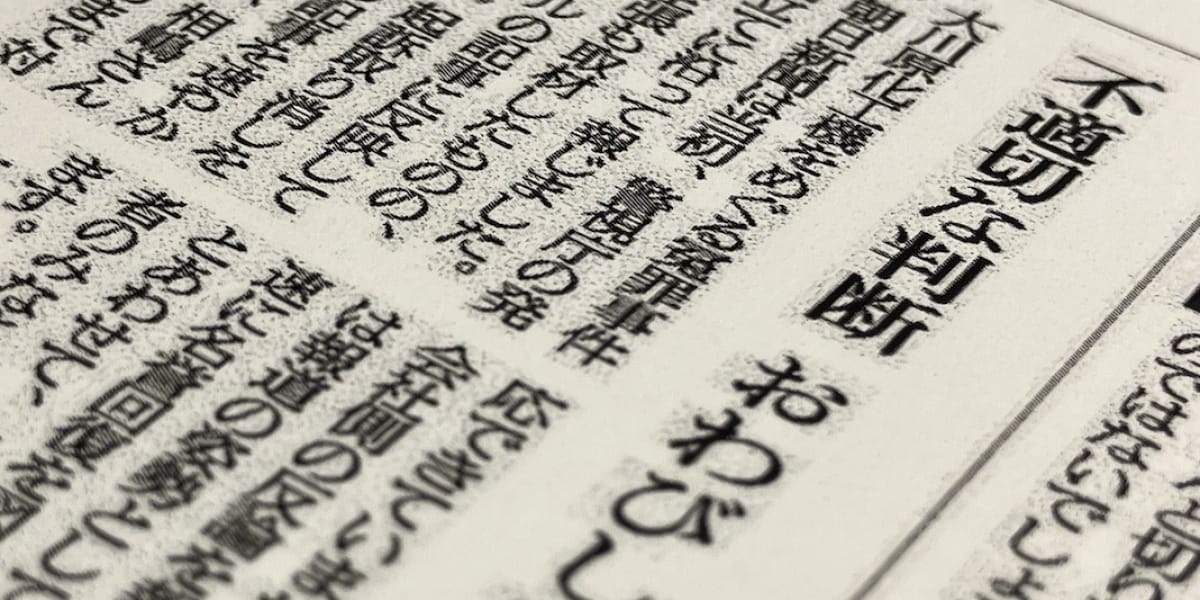 のではないでしょ
不適切な判断 おわびし
大川原化工機をめぐる冤罪事件
朝日新聞は当初、警視庁の発
立てに沿って報じました。
張も取材したものの、
ルの記事に反映して
起訴取り消しを
記事を速やか
相嶋さん
まで対
応できていま
会社側の反論を
は報道の姿勢とし
速に名誉回復を図
とあわせて、
者のみな
ます。